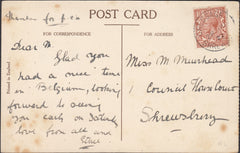 Thanks for p.c.
POST CARD
FOR CORRESPONDENCE
FOR ADDRESS
Printed in England
Dear M.
Glad you
had a nice time
in Belgium, looking
forward to seeing
you early on Saturday
love from all and
Miss M Muirhead
Council House Court
Shrewsbury